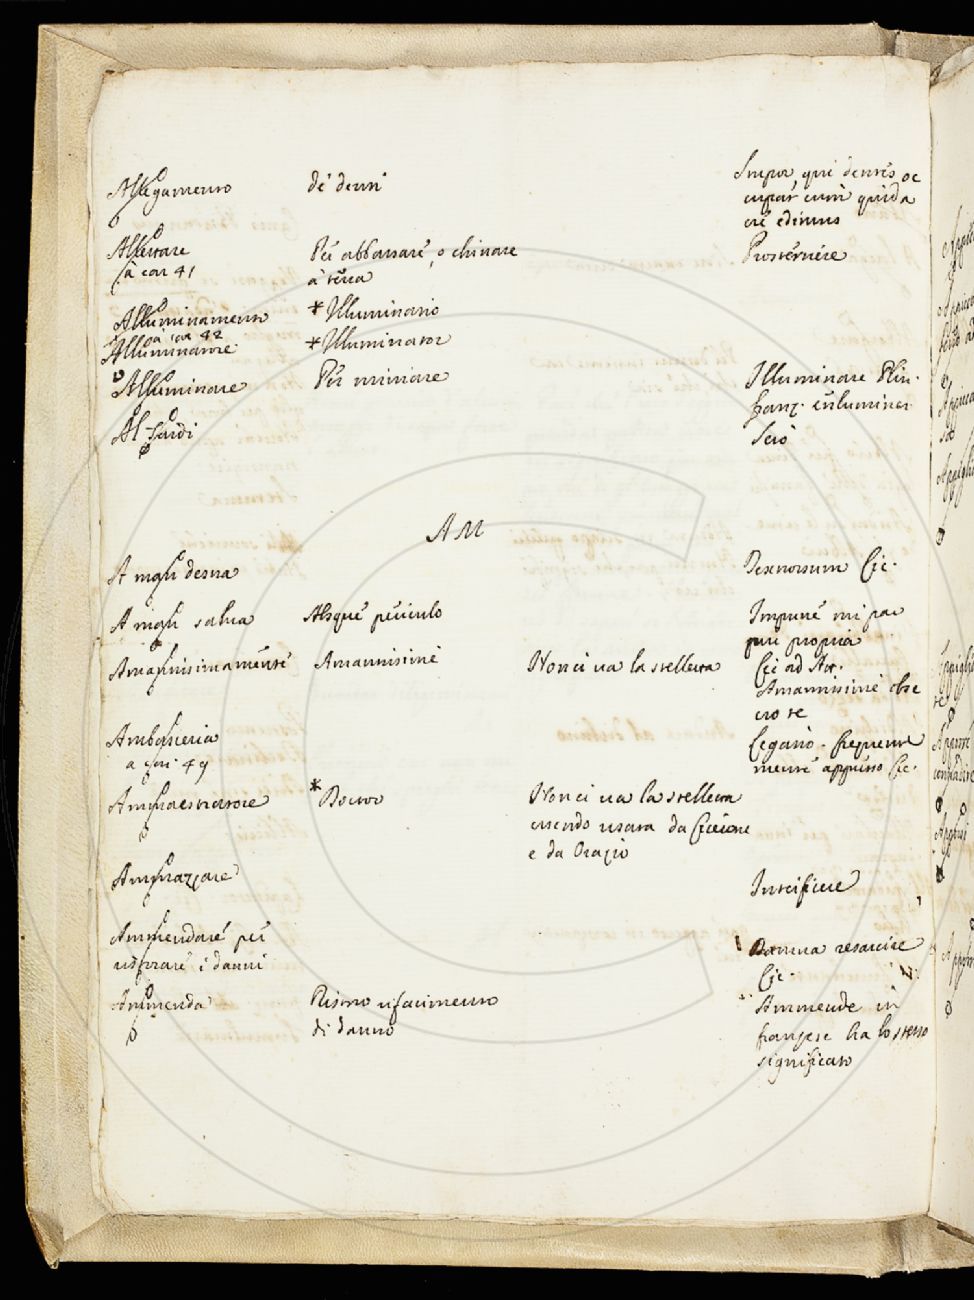 Allegamento
de' denti
Stupor, qui dentes oc
cupat cum quida
Allettare
à car 41
Per abbassare, o chinare
à terra
Prosternere
Alluminamento
* Illuminatio
à car 42
Alluminatore
* Illuminator
Alluminare
Per miniare
Illuminare Plin.
franz. enluminer
Al-tardi
Sero
AM
A man destra
Dextrorsum Cic.
A man salva
Absque periculo
Impune
Amantissimamente
Amantissime
Non ci va la stelletta
Cic ad Att.
Amantissime obse
cro te
Ambasceria
a car. 49
Legatio. frequente
mente appresso Cic.
Ammaestratore
* Doctor
Non ci va la stelletta
essendo usata da Cicerone
e da Orazio
Ammazzare
Interficere
Ammendare per
ristorare i danni
Damna resarcire
Cic.
Ammenda
Ristoro rifacimento
di danno
Ammende in
franzese ha lo stesso
significato